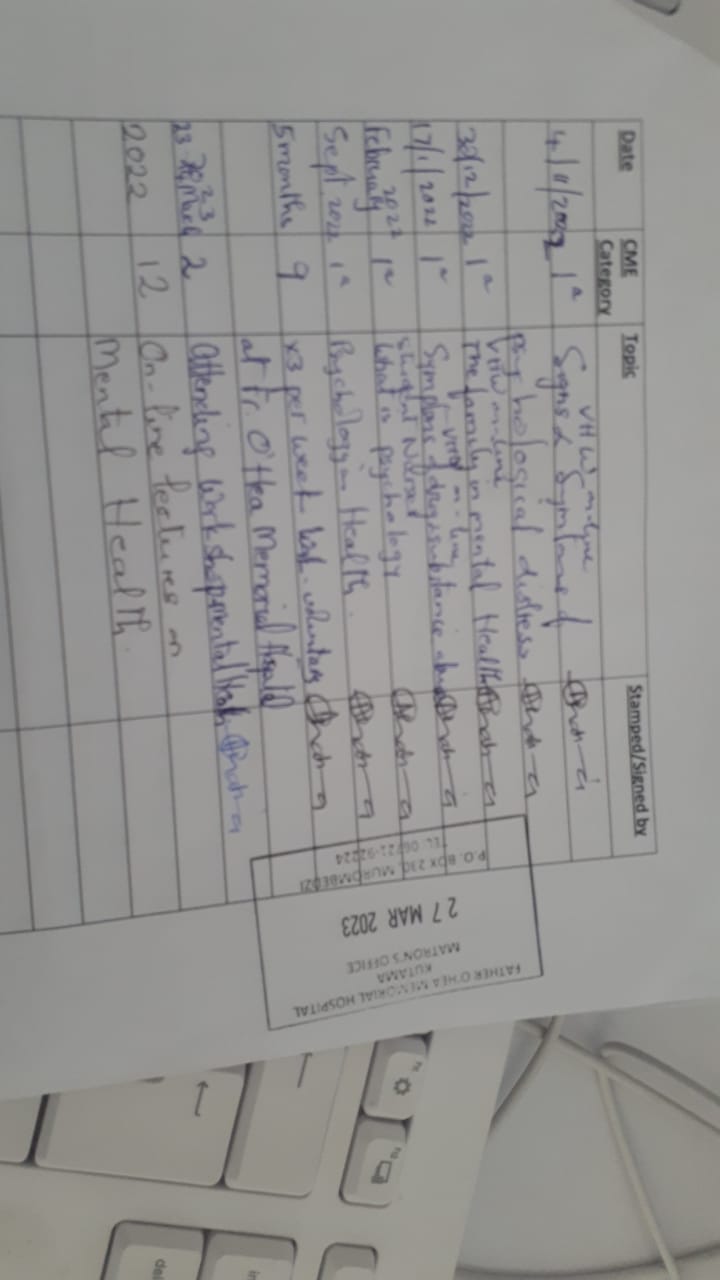 Date CME Category Topic Stamped/Signed by
4/11/2022 1a VHW on-line
Signs & Symptoms of
psychological distress
VHW on-line
30/12/2022 1a The family in mental Health
VHW on-line
17/1/2022 1a Symptoms of drug substance
student Nurses
February 2022 1a What is psychology
Sept 2022 1a Psychology in Health.
5 months 9 x3 per week voluntary
at Fr. O'Hea Memorial Hospital
2023
23 March 2 Attending Workshop mental Health
2022 12 On-line lectures on
Mental Health.
FATHER O'HEA MEMORIAL HOSPITAL
KUTAMA
MATRON'S OFFICE
27 MAR 2023
P.O. BOX 230, MUROMBEDZI
TEL: 06721-92224
del